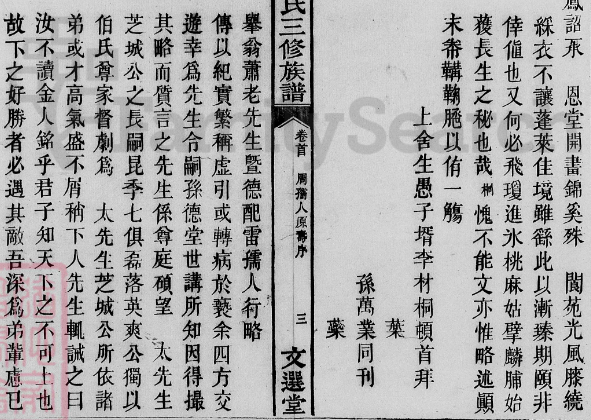 鳳詔永　恩堂開晝錦奚殊　閬苑光風滕繞
綵衣不讓蓬萊佳境雖繇此以漸臻期頤非
倖僱也又何必飛瓊進氷桃麻姑擘麟脯始
穫長生之秘也哉　愧不能文亦惟略述顚
末帣鞲鞠䠆以侑一觴
上舍生愚子壻李材桐頓首拜
葉
孫萬業同刊
藥
氏三修族譜
卷首　周孺人原壽序　三
文選堂
舉翁蕭老先生暨德配雷孺人行略
傳以紀實繁稱虛引或轉病於褻余四方交
遊幸爲先生令嗣孫德堂世講所知因得撮
其略而質言之先生係尊庭碩望　太先生
芝城公之長嗣昆季七俱磊落英爽公獨以
伯氏尊家督劇爲　太先生芝城公所依諸
弟或才高氣盛不屑稍下人先生輒誡之曰
汝不讀金人銘乎君子知天下之不可上也
故下之好勝者必遇其敵吾深爲弟輩慮已
FamilySearch